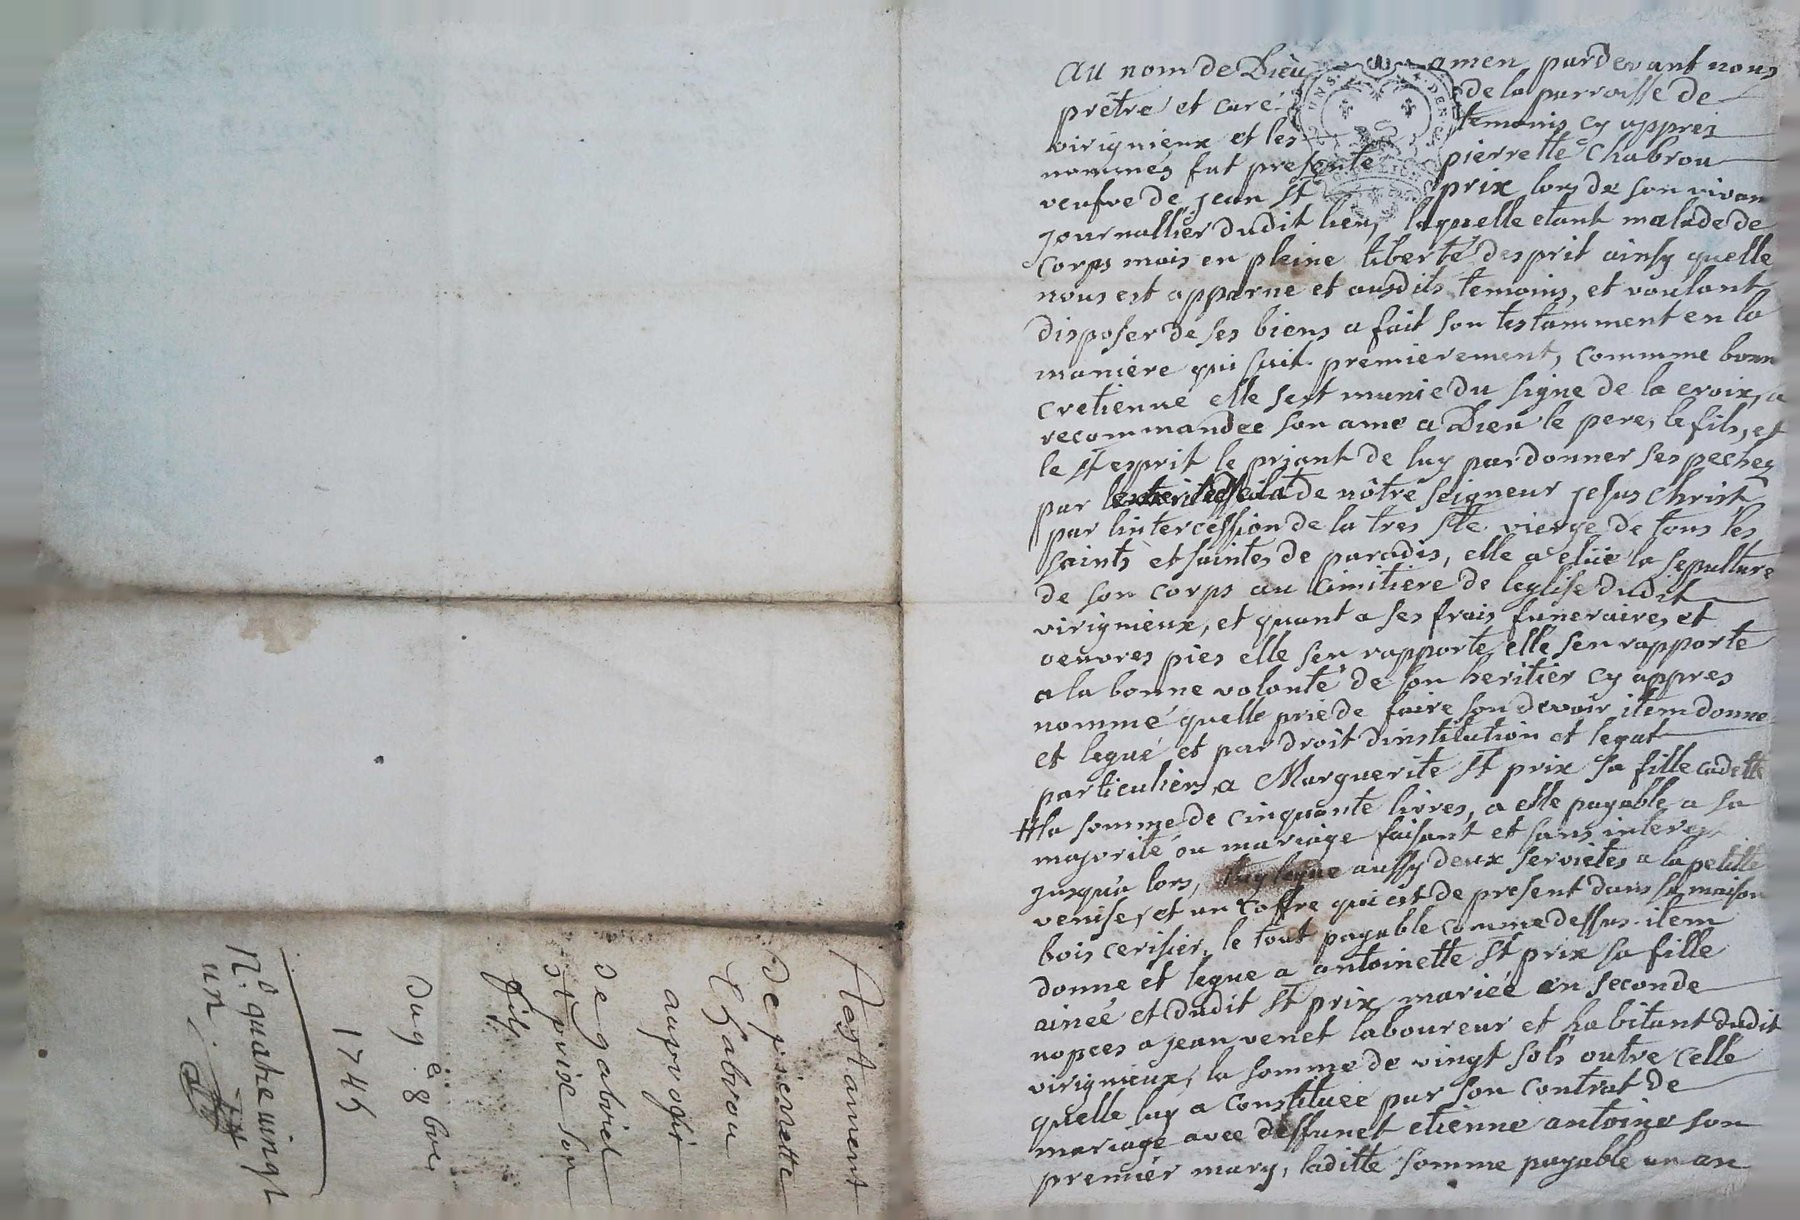 Testament
de pierrette
Chabrou
au profit
de gabriel
st prix son
fils
du 9e 8bre
1745
No quatre vingt
un.
au nom de Dieu amen pardevant nous
prêtre et curé de la parroisse de
virignieux et les temoins cy appres
nommés fut presente pierrette Chabrou
veufve de jean St prix lors de son vivan
journallier dudit lieu, laquelle etant malade de
corps mais en pleine liberté desprit ainsy quelle
nous est apparue et ausdits temoins, et voulant
disposer de ses biens a fait son testamment en la
maniere qui suit premierement, commme bonne
cretienne elle sest munie du signe de la croix, a
recommandee son ame a Dieu le pere, le fils, et
le St esprit le priant de luy pardonner ses peches
par de nôtre seigneur jesus christ
par lintercession de la tres Ste vierge de tous les
saints et saintes de paradis, elle a elüe la sepulture
de son corps au cimitiere de leglise dudit
virignieux, et quant a ses frais funeraires et
oeuvres pies elle sen rapporte elle sen rapporte
a la bonne volonté de son heritier cy appres
nommé quelle prie de faire son devoir item donne
et legué et par droit dinstitution et legat
particuliers a Marguerite St prix sa fille cadette
la somme de cinquante livres, a elle payable a sa
majorité ou mariage faisant et sans interest
jusqua lors, luy legue aussy deux servietes a la petitte
venise, et un coffre qui est de present dans sa maison
bois cerisier, le tout payable comme dessus. item
donne et legue a antoinette St prix sa fille
ainée et dudit St prix mariée en seconde
nopces a jean venet laboureur et habitant dudit
virignieux, la somme de vingt sols outre celle
quelle luy a constituee par son contrat de
mariage avec deffunct etienne antoine son
premier mary, laditte somme payable un an